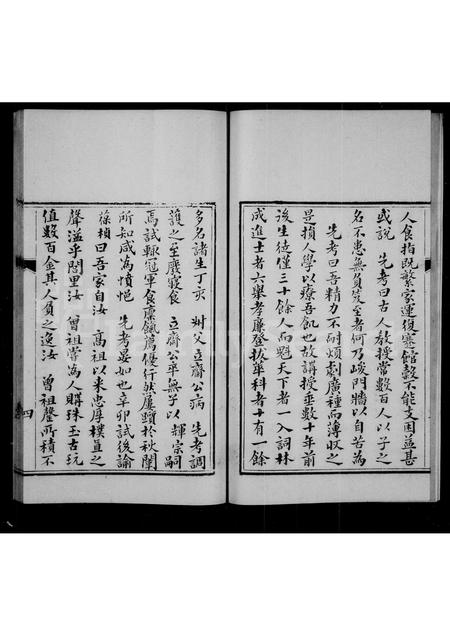 人食指既繁家運復窘館穀不能支困益甚
或說　先考曰古人教授常數百人以子之
名不患無負笈至者何乃峻門牆以自苦為
先考曰吾精力不耐煩劇廣種而薄收之
曷損人學以療吾飢也故講授垂數十年前
後生徒僅三十餘人而魁天下者一入詞林
成進士者六舉孝廉登拔萃科者十有一餘
多名諸生丁亥　叔父立齋公病　先考調
護之至廢寢食　立齋公卒無子以　輝宗嗣
焉試輒冠軍食廩餼薦優行然屢躓於秋闈
所知咸為憤悒　先考晏如也辛卯試後諭
葆楨曰吾家自汝　高祖以來忠厚樸直之
聲溢乎閭里汝　曾祖嘗為人購珠玉古玩
值數百金其人負之逸汝　曾祖罄所積不
四